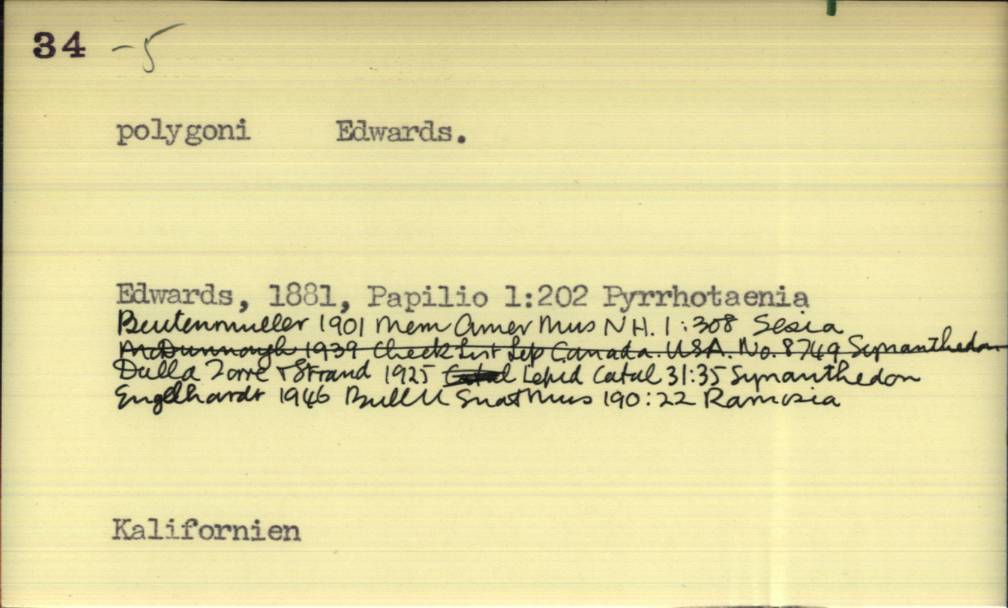 34 -5
polygoni Edwards.
Edwards, 1881, Papilio 1:202 Pyrrhotaenia
Beutenmueller 1901 Mem Amer Mus N H. 1:308 Sesia
McDunnough 1939 Check List Lep Canada. USA. No. 8749 Synanthedon
Dalla Torre & Strand 1925 Lepid Catal 31:35 Synanthedon
Engelhardt 1946 Bull U S nat Mus 190:22 Ramosia
Kalifornien